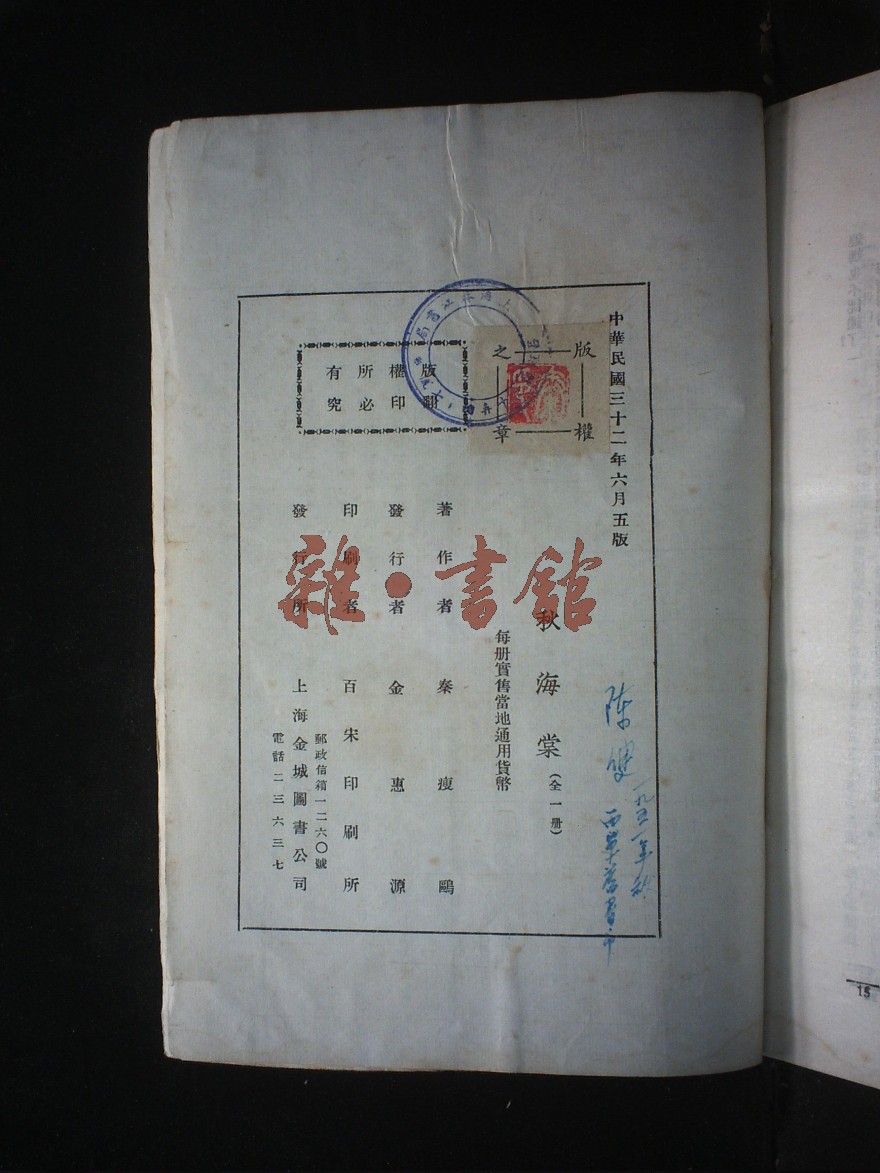 中華民國三十二年六月五版
版權
之章
版權所有
翻印必究
秋海棠（全一册）
每册實售當地通用貨幣
著作者 秦瘦鷗
發行者 金惠源
印刷者 百宋印刷所
發行所 上海金城圖書公司
郵政信箱一二六〇號
電話二三六三七
雜·書館
陳
一九五一年秋
15